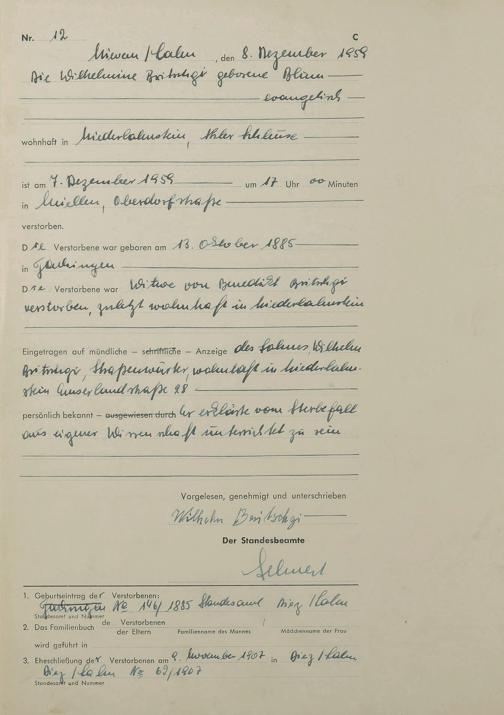 Nr. 12 C
Nievern/Lahn, den 8. Dezember 1959
Die Wilhelmine Britschgi geborene Blum
evangelisch
wohnhaft in Niederlahnstein, Ahler Schleuse
ist am 7. Dezember 1959 um 17 Uhr 00 Minuten
in Miellen, Oberdorfstraße
verstorben.
Die Verstorbene war geboren am 13. Oktober 1885
in
Die Verstorbene war Witwe von Benedikt Britschgi
verstorben, zuletzt wohnhaft in Niederlahnstein
Eingetragen auf mündliche – schriftliche – Anzeige des Sohnes, Wilhelm
Britschgi, Straßenwärter, wohnhaft in Niederlahn-
stein 28
persönlich bekannt – ausgewiesen durch Er erklärte vom Sterbefall
aus eigener Wissenschaft unterrichtet zu sein
Vorgelesen, genehmigt und unterschrieben
Wilhelm Britschgi
Der Standesbeamte
1. Geburtseintrag der Verstorbenen:
No 146/1885 Standesamt Diez/Lahn
Standesamt und Nummer
2. Das Familienbuch de Verstorbenen
der Eltern Familienname des Mannes / Mädchenname der Frau
wird geführt in
3. Eheschließung der Verstorbenen am 9. November 1907 in Diez/Lahn
Diez/Lahn No 69/1907
Standesamt und Nummer